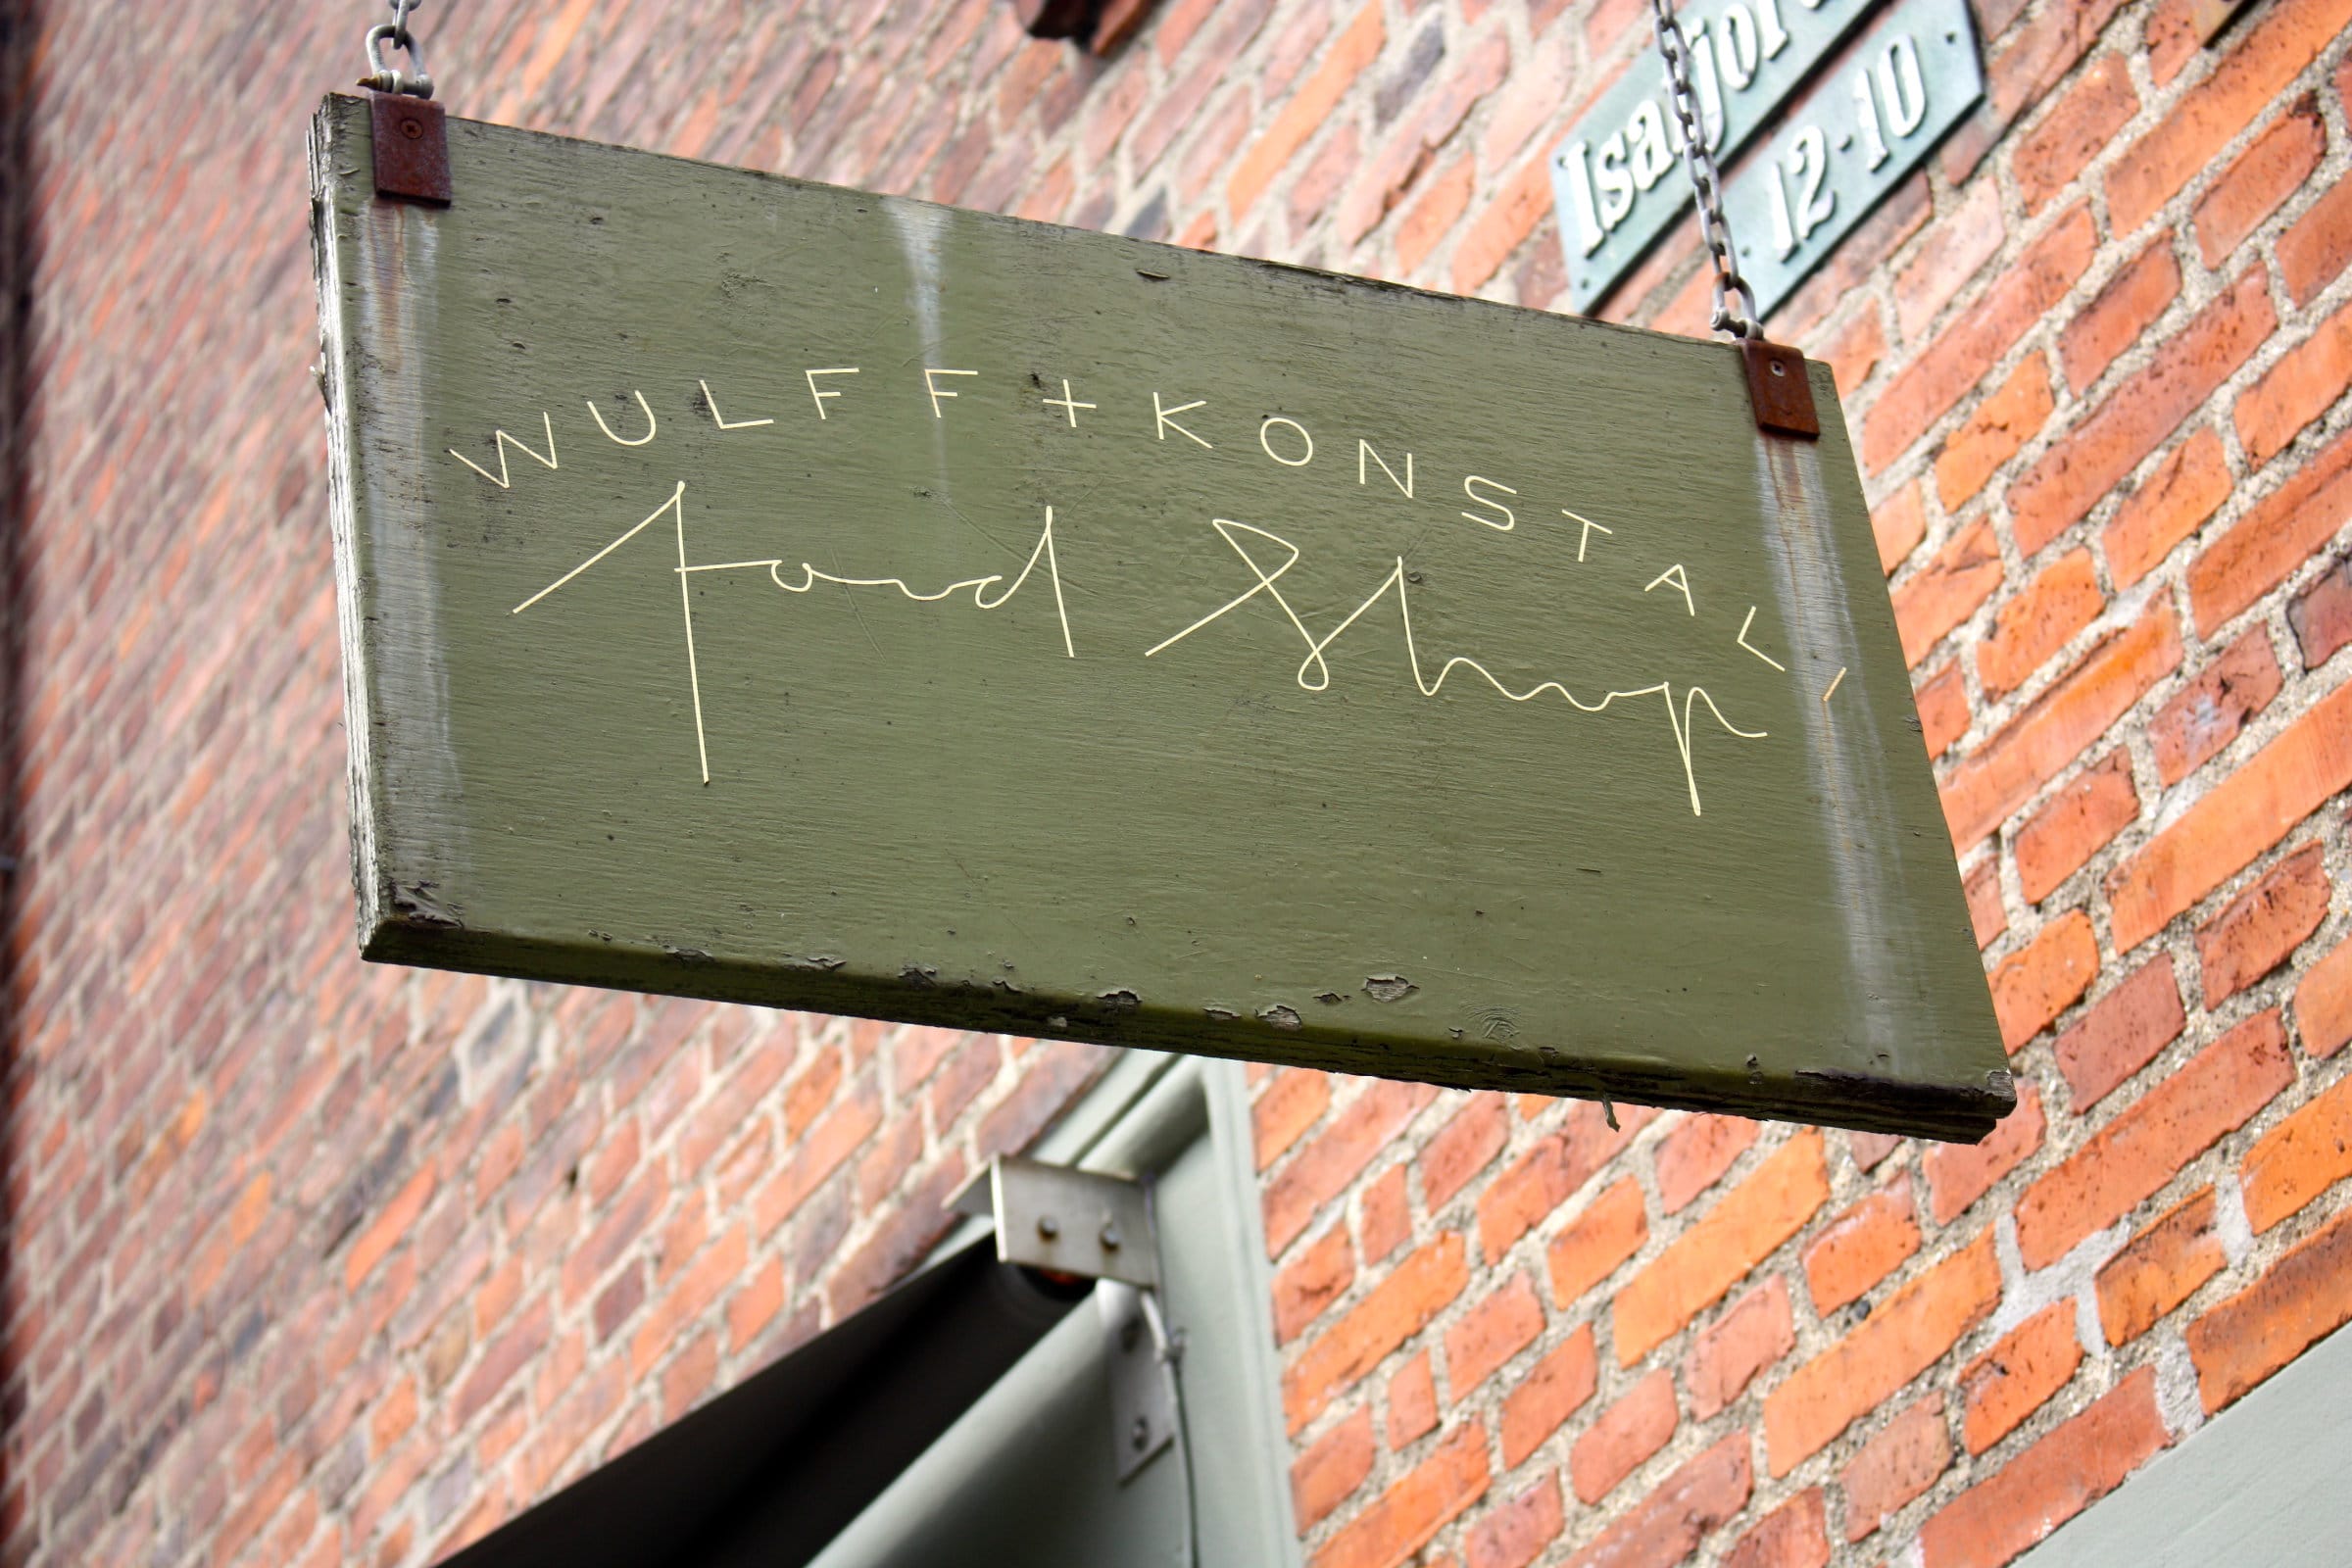 Isafjor
12-10
WULFF + KONSTALI
food Shop